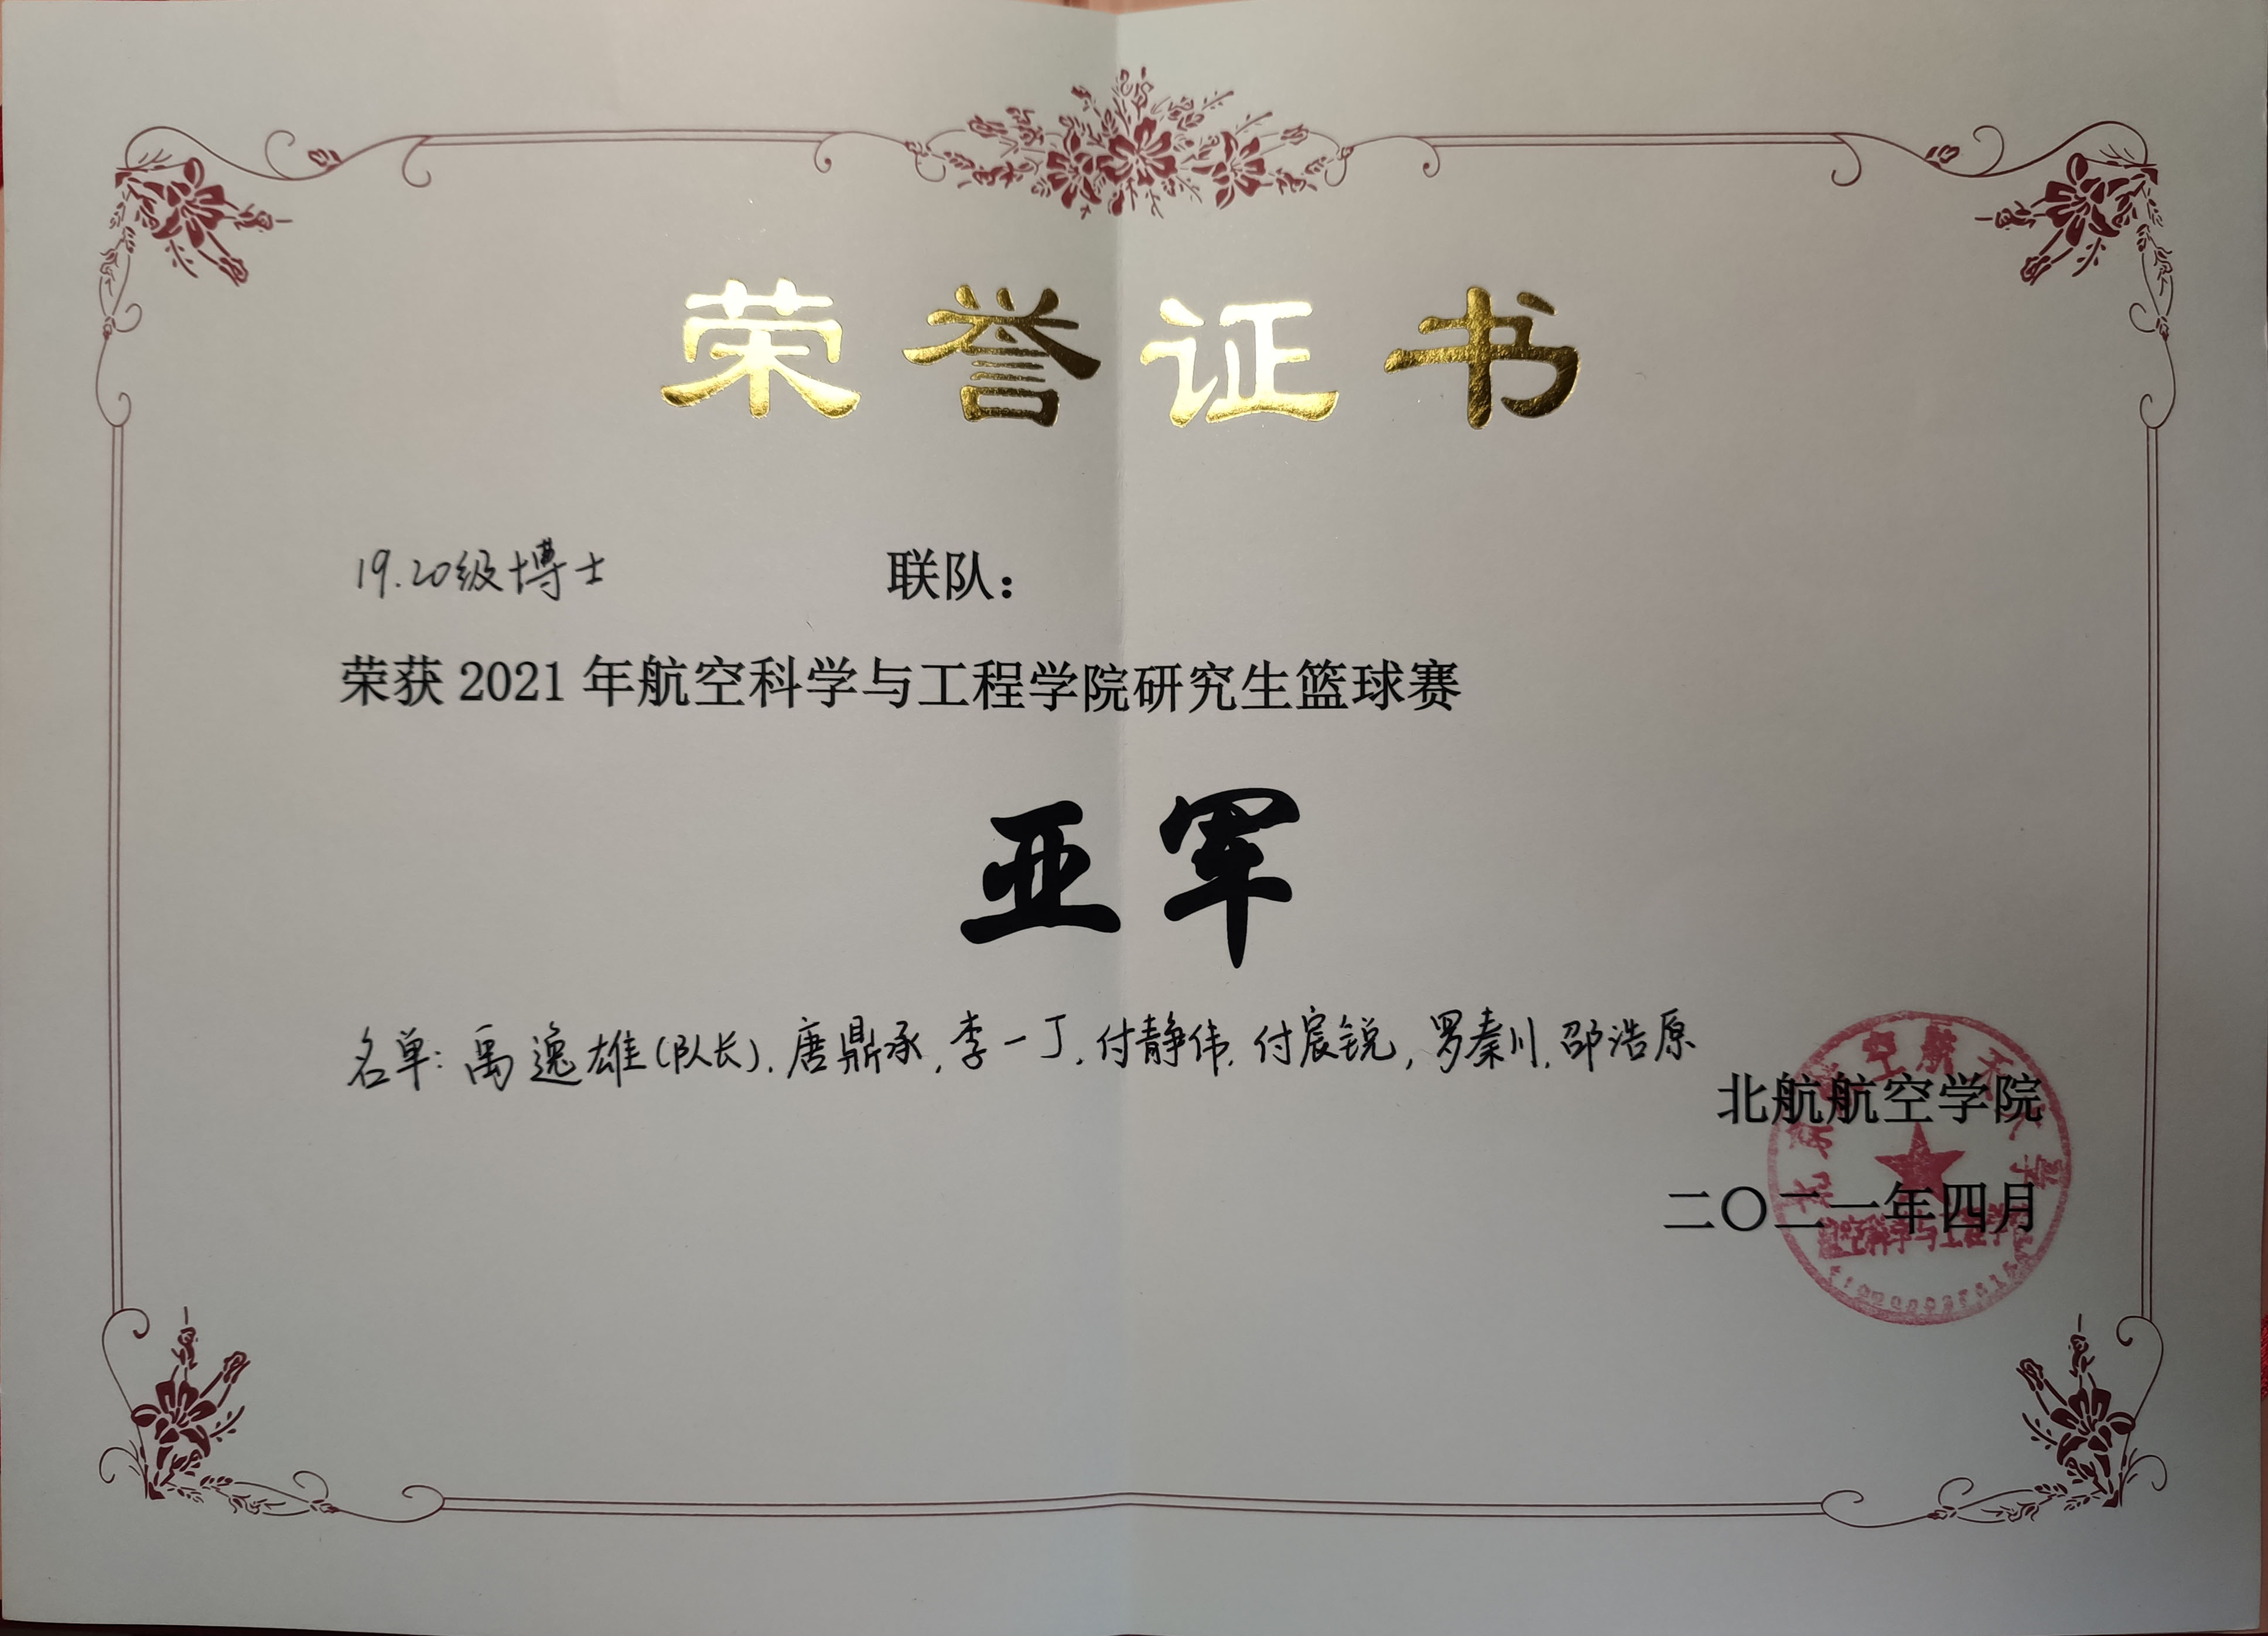 荣誉证书
19.20级博士 联队：
荣获2021年航空科学与工程学院研究生篮球赛
亚军
名单：禹逸雄（队长），唐鼎承，李一丁，付静伟，付宸锐，罗秦川，邵浩原
北航航空学院
二〇二一年四月
航空科学与工程学院